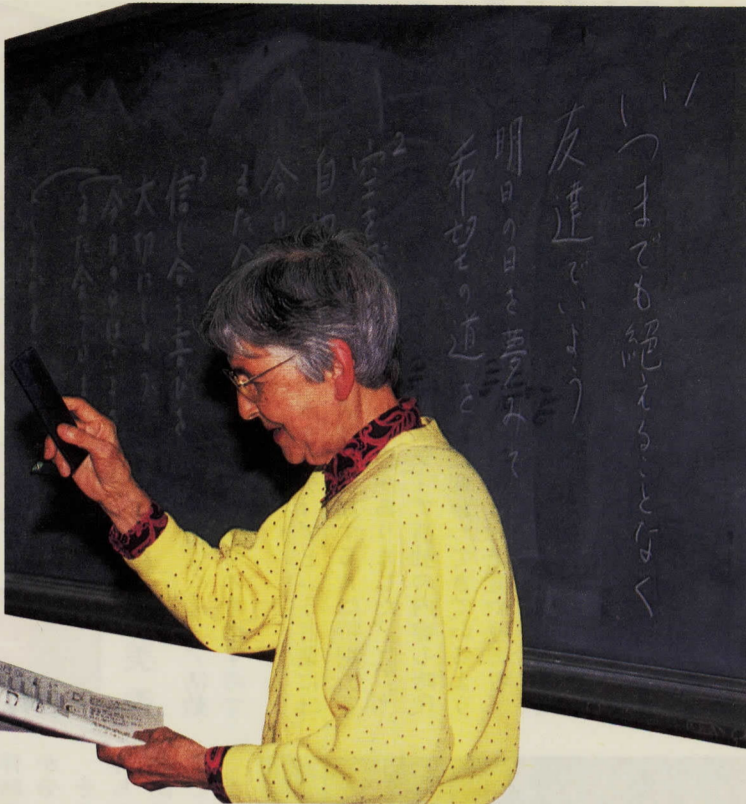 いつまでも絶えることなく
友達でいよう
明日の日を夢みて
希望の道を
2 空を
自
今日
また会
3 信じ合う喜びを
大切にしよう
今日の日は
また会う日